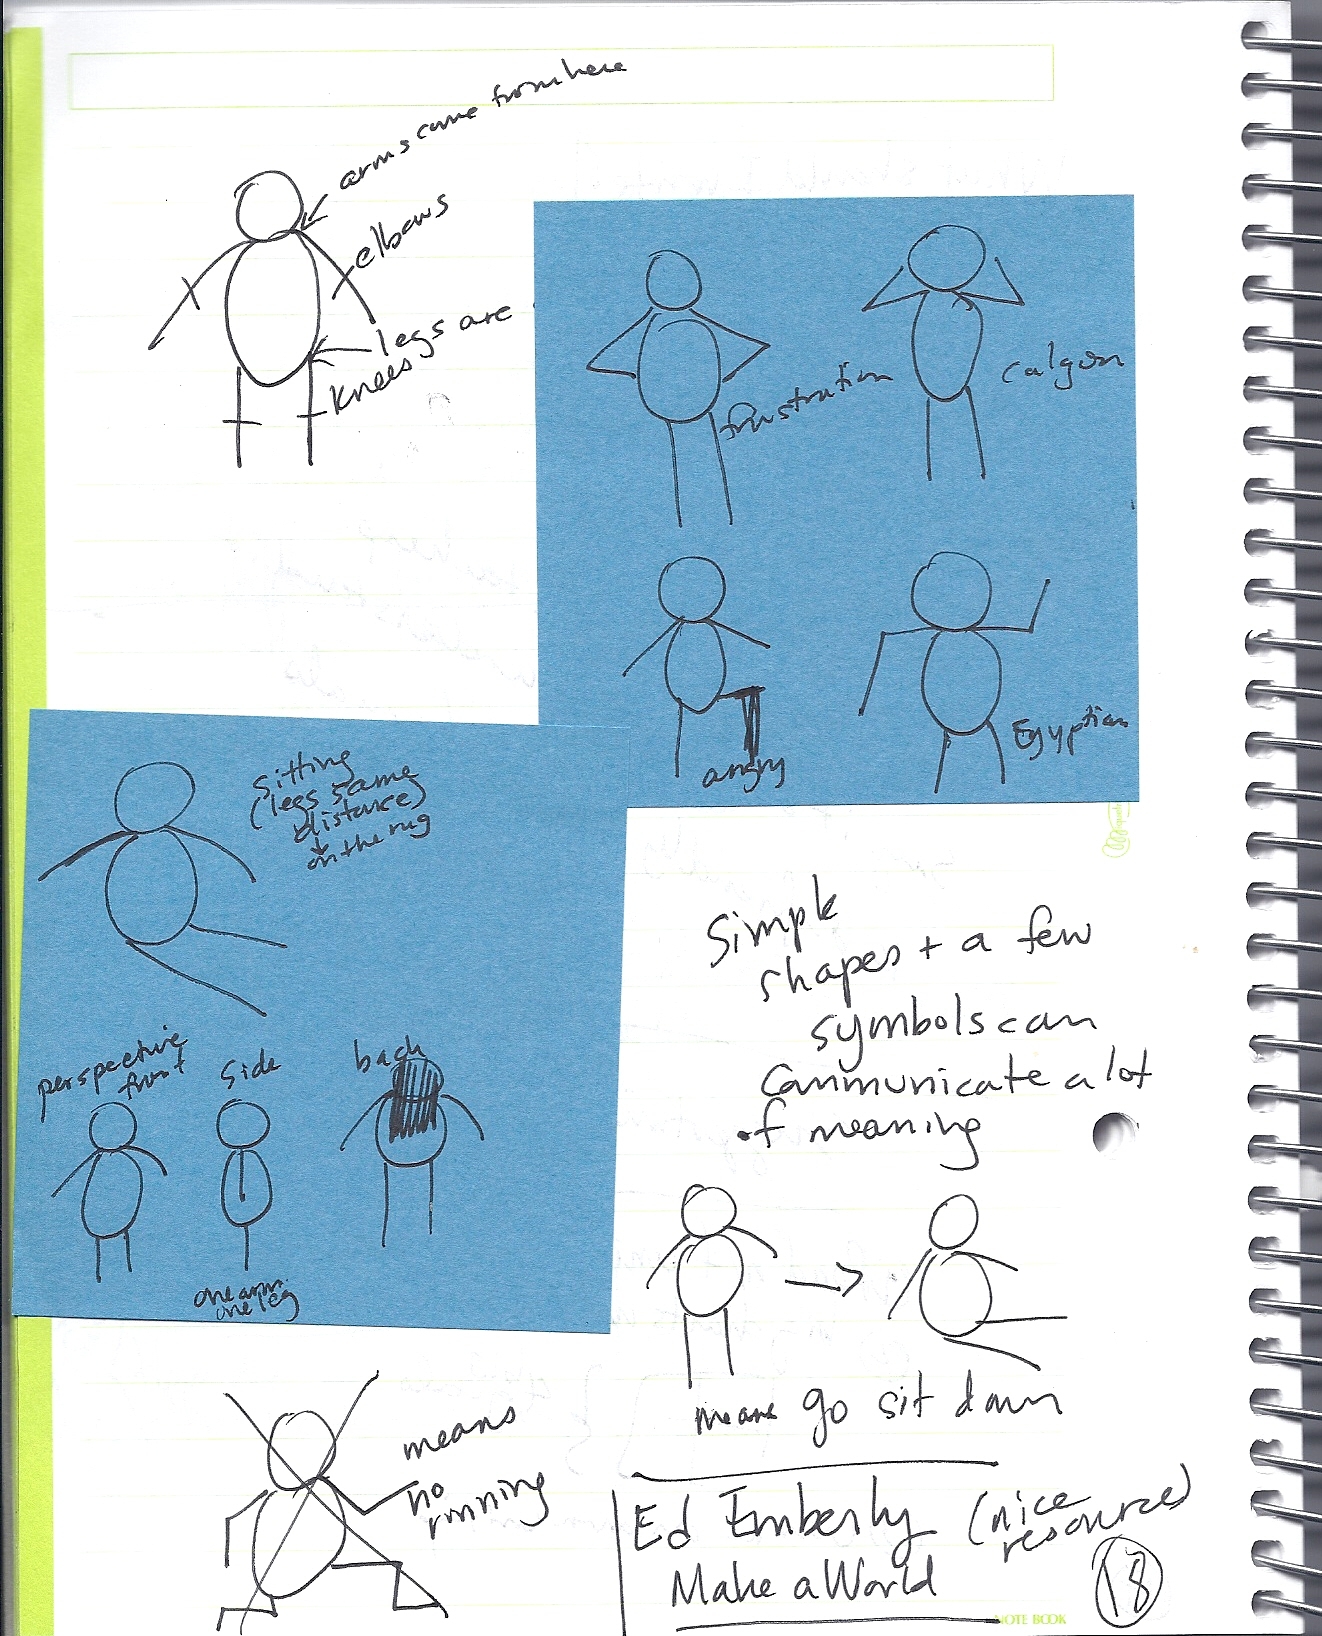 arms come from here
elbows
legs are
knees
frustration
calgon
angry
Egyptian
sitting
(legs same
distance)
on the rug
perspective
front
side
back
one arm
one leg
simple
shapes + a few
symbols can
communicate a lot
of meaning
means go sit down
means
no
running
Ed Emberly (nice
resource)
Make a World
18
NOTE BOOK